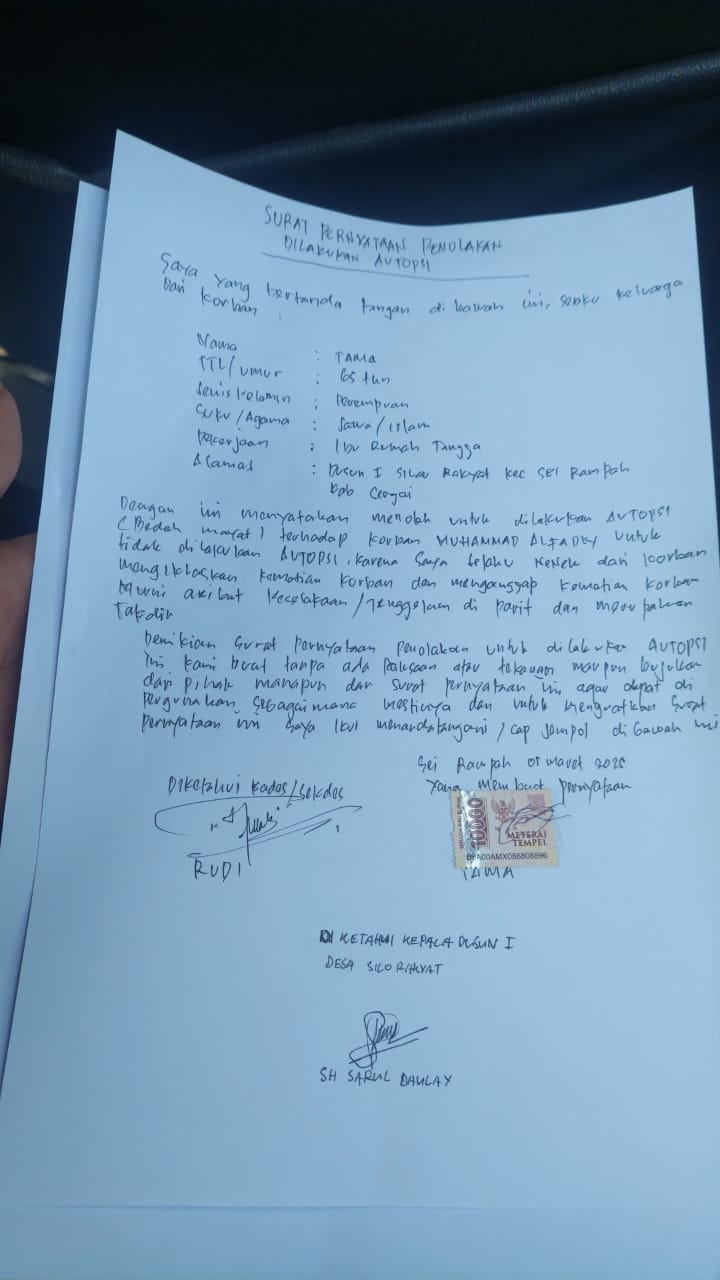 SURAT PERNYATAAN PENOLAKAN
DILAKUKAN AUTOPSI
Saya yang bertanda tangan di bawah ini, selaku keluarga
Dari korban :
Nama : TAMA
TTL/umur : 65 thn
Jenis kelamin : Perempuan
Suku/Agama : Jawa/Islam
Pekerjaan : Ibu Rumah Tangga
Alamat : Dusun I Silau Rakyat Kec SEI Rampah
Kab Sergai
Dengan ini menyatakan menolak untuk dilakukan AUTOPSI
(Bedah mayat) terhadap korban MUHAMMAD ALFADLY untuk
tidak dilakukan AUTOPSI, karena saya selaku Nenek dari korban
mengikhlaskan kematian korban dan menganggap kematian korban
Murni akibat kecelakaan/Tenggelam di parit dan merupakan
Takdir
Demikian surat pernyataan penolakan untuk dilakukan AUTOPSI
ini kami buat tanpa ada paksaan atau tekanan maupun bujukan
dari pihak manapun dan surat pernyataan ini agar dapat di
pergunakan sebagaimana mestinya dan untuk menguatkan surat
pernyataan ini saya ikut menandatangani / cap jempol di bawah ini
Sei Rampah 01 Maret 2025
Diketahui Kades/Sekdes
Yang membuat pernyataan
10000
METERAI
TEMPEL
RUDI
TAMA
DI KETAHUI KEPALA DUSUN I
DESA SILO RAKYAT
SH SARUL DAULAY